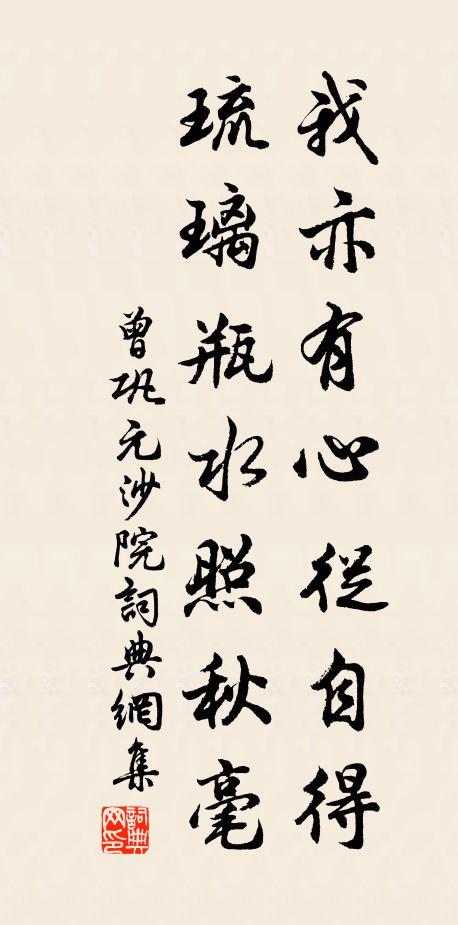 我亦有心從自得
琉璃瓶水照秋毫
曾巩元沙院詞典網集
詞典網印